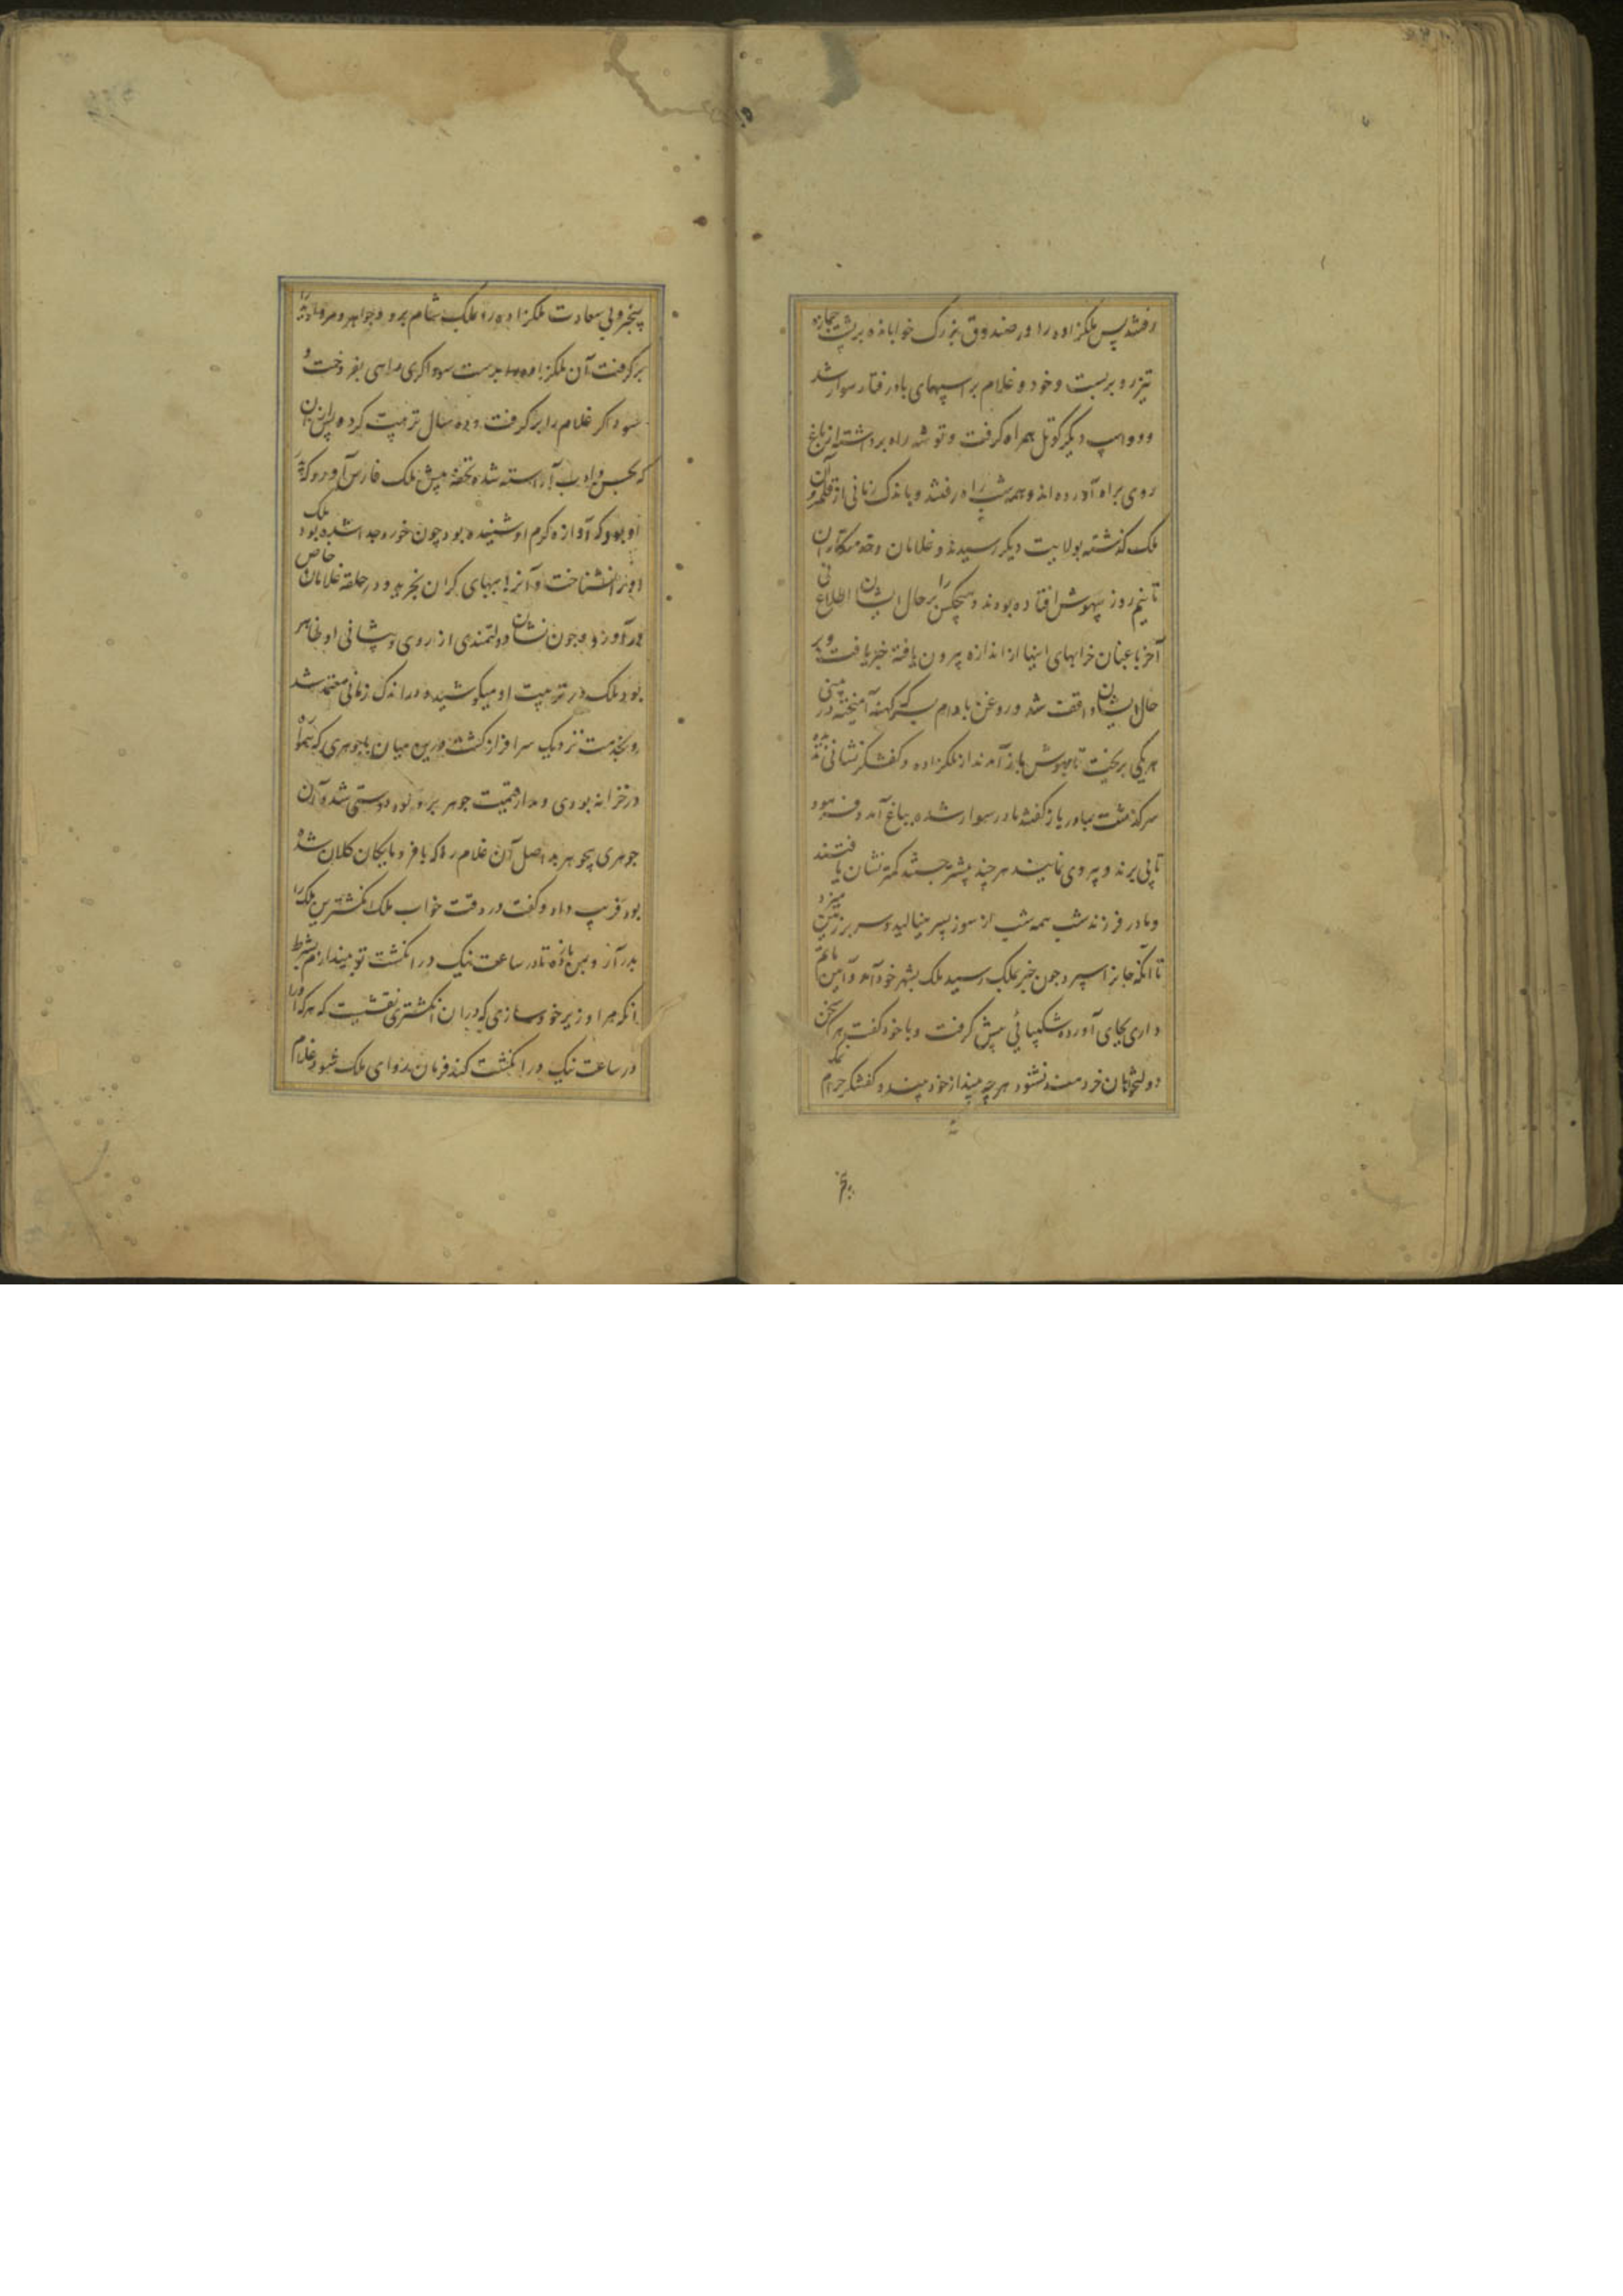 رفتند پس ملکزاده را در صندوق بزرک خوابانده بر پشت جمازه
تیز رو بربست و خود و غلام بر اسپهای بادرفتار سوار شد
و دو اسپ دیکر کوتل همراه کرفت و توشه راه برداشته از باغ
روی براه آورده اند و همه شب راه رفتند و باندک زمانی از قلمرو آن
ملک کذشته بولایت دیکر رسیدند و غلامان و خدمتکاران
تا نیم روز بیهوش افتاده بودند و هیچکس را بر حال ایشان اطلاع نی
آخر باغبان خوابهای اینها از اندازه بیرون یافته خبر یافت و بر
حال ایشان واقف شد و روغن بادام بسرکه کهنه آمیخته در بینی
هر یکی بریخت تا بهوش باز آمدند از ملکزاده و کفشکر نشانی ندیده
سرکذشت بمادر باز کفتند مادر سوار شده بباغ آمد و فرمود
تا پی برند و پیروی نمایند هر چند بیشتر جستند کمتر نشان یافتند
و مادر فرزند شب همه شب از سوز پسر مینالید و سر بر زمین میزد
تا آنکه جان را سپرد چون خبر بملک رسید ملک بشهر خود آمد و آیین ماتم
داری بجای آورده شکیبائی پیش کرفت و با خود کفت هر که سخن
دولتخواهان خردمند نشنود هر چه بیند از خود بیند و کفشکر حرام نمک
بنجر
بنجر و بی سعادت ملکزاده را بملک شام برد و جواهر و مروارید را
برکرفت آن ملکزاده را بدست سوداکری براهی بفروخت و
سوداکر غلام را بر کرفت و ده سال تربیت کرده پس از آن
که بحسن و ادب آراسته شد تحفه پیش ملک فارس آورد که پدر
او بود که آوازه کرم او شنیده بود چون خورد جدا شده بود ملک
او را نشناخت و آنرا ببهای کران بخرید و در حلقه غلامان خاص
درآورد و چون نشان دولتمندی از روی و پیشانی او ظاهر
بود ملک در تربیت او میکوشید و در اندک زمانی معتمد شد
و بخدمت نزدیک سرافراز کشت درین میان با جوهری که همواره
در خزانه بودی و مدار قیمت جوهر برو بود دوستی شد و آن
جوهری بیجوهر بد اصل آن غلام را که با فرومایکان کلان شده
بود فریب داد و کفت در وقت خواب ملک انکشترین ملک را
بدر آر و بمن بازده تا در ساعت نیک در انکشت تو بیندازم بشرط
آنکه مرا وزیر خود سازی که در آن انکشتری نقشیست که هر که آنرا
در ساعت نیک در انکشت کند فرمان روای ملک شود غلام